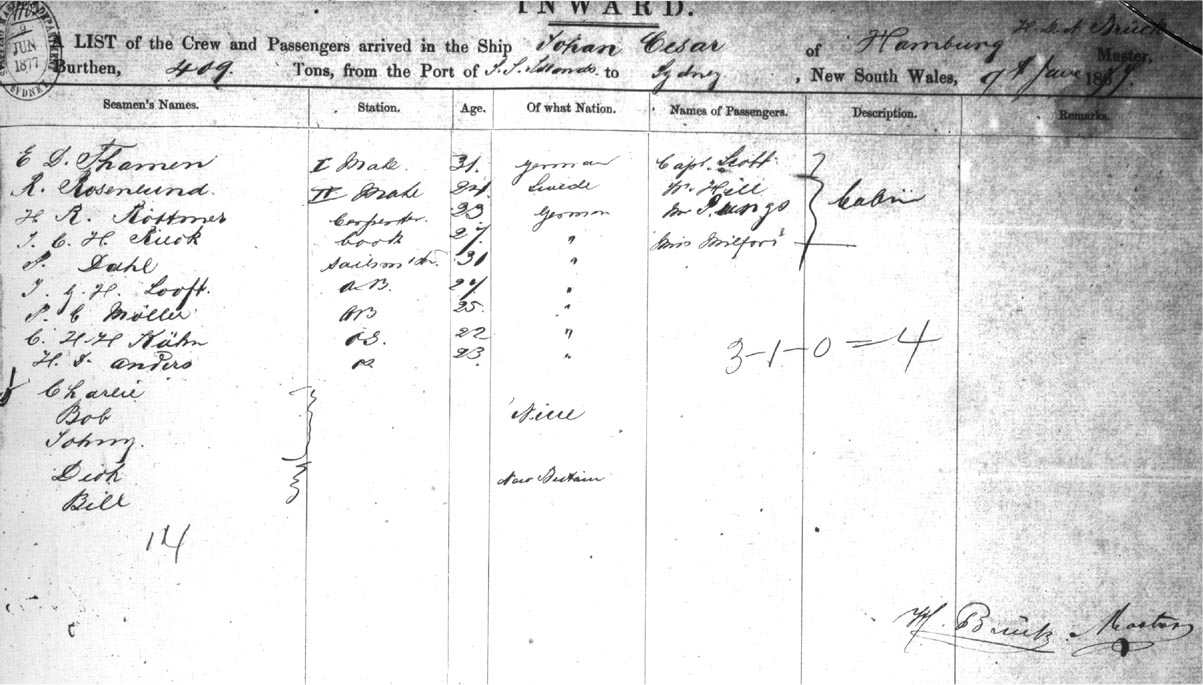 INWARD.
JUN
1877
SYDNEY
A LIST of the Crew and Passengers arrived in the Ship Johan Cesar of Hamburg H. Brück Master,
Burthen, 409 Tons, from the Port of S. S. Islands to Sydney, New South Wales, 9th June 1877
Seamen's Names. Station. Age. Of what Nation. Names of Passengers. Description. Remarks.
E D. Thamen I Mate 31. German Capt. Scott
R. Rosenlund. II Mate 24 Swede Mr Hill Cabin
H R. Röttmer Carpenter 23 German Mr
J. C. H. Rieck Cook 27. " Miss Milford
P. Dahl Sailsm'kr. 31 "
J. G. H. Looft. A.B. 27 "
P. C Möller AB 25. "
C. H H Kühn O.S. 22 "
H. J. Anders 23 "
3-1-0=4
Charlie
Bob Niue
Johny.
Dick New Britain
Bill
14
H. Brück. Master